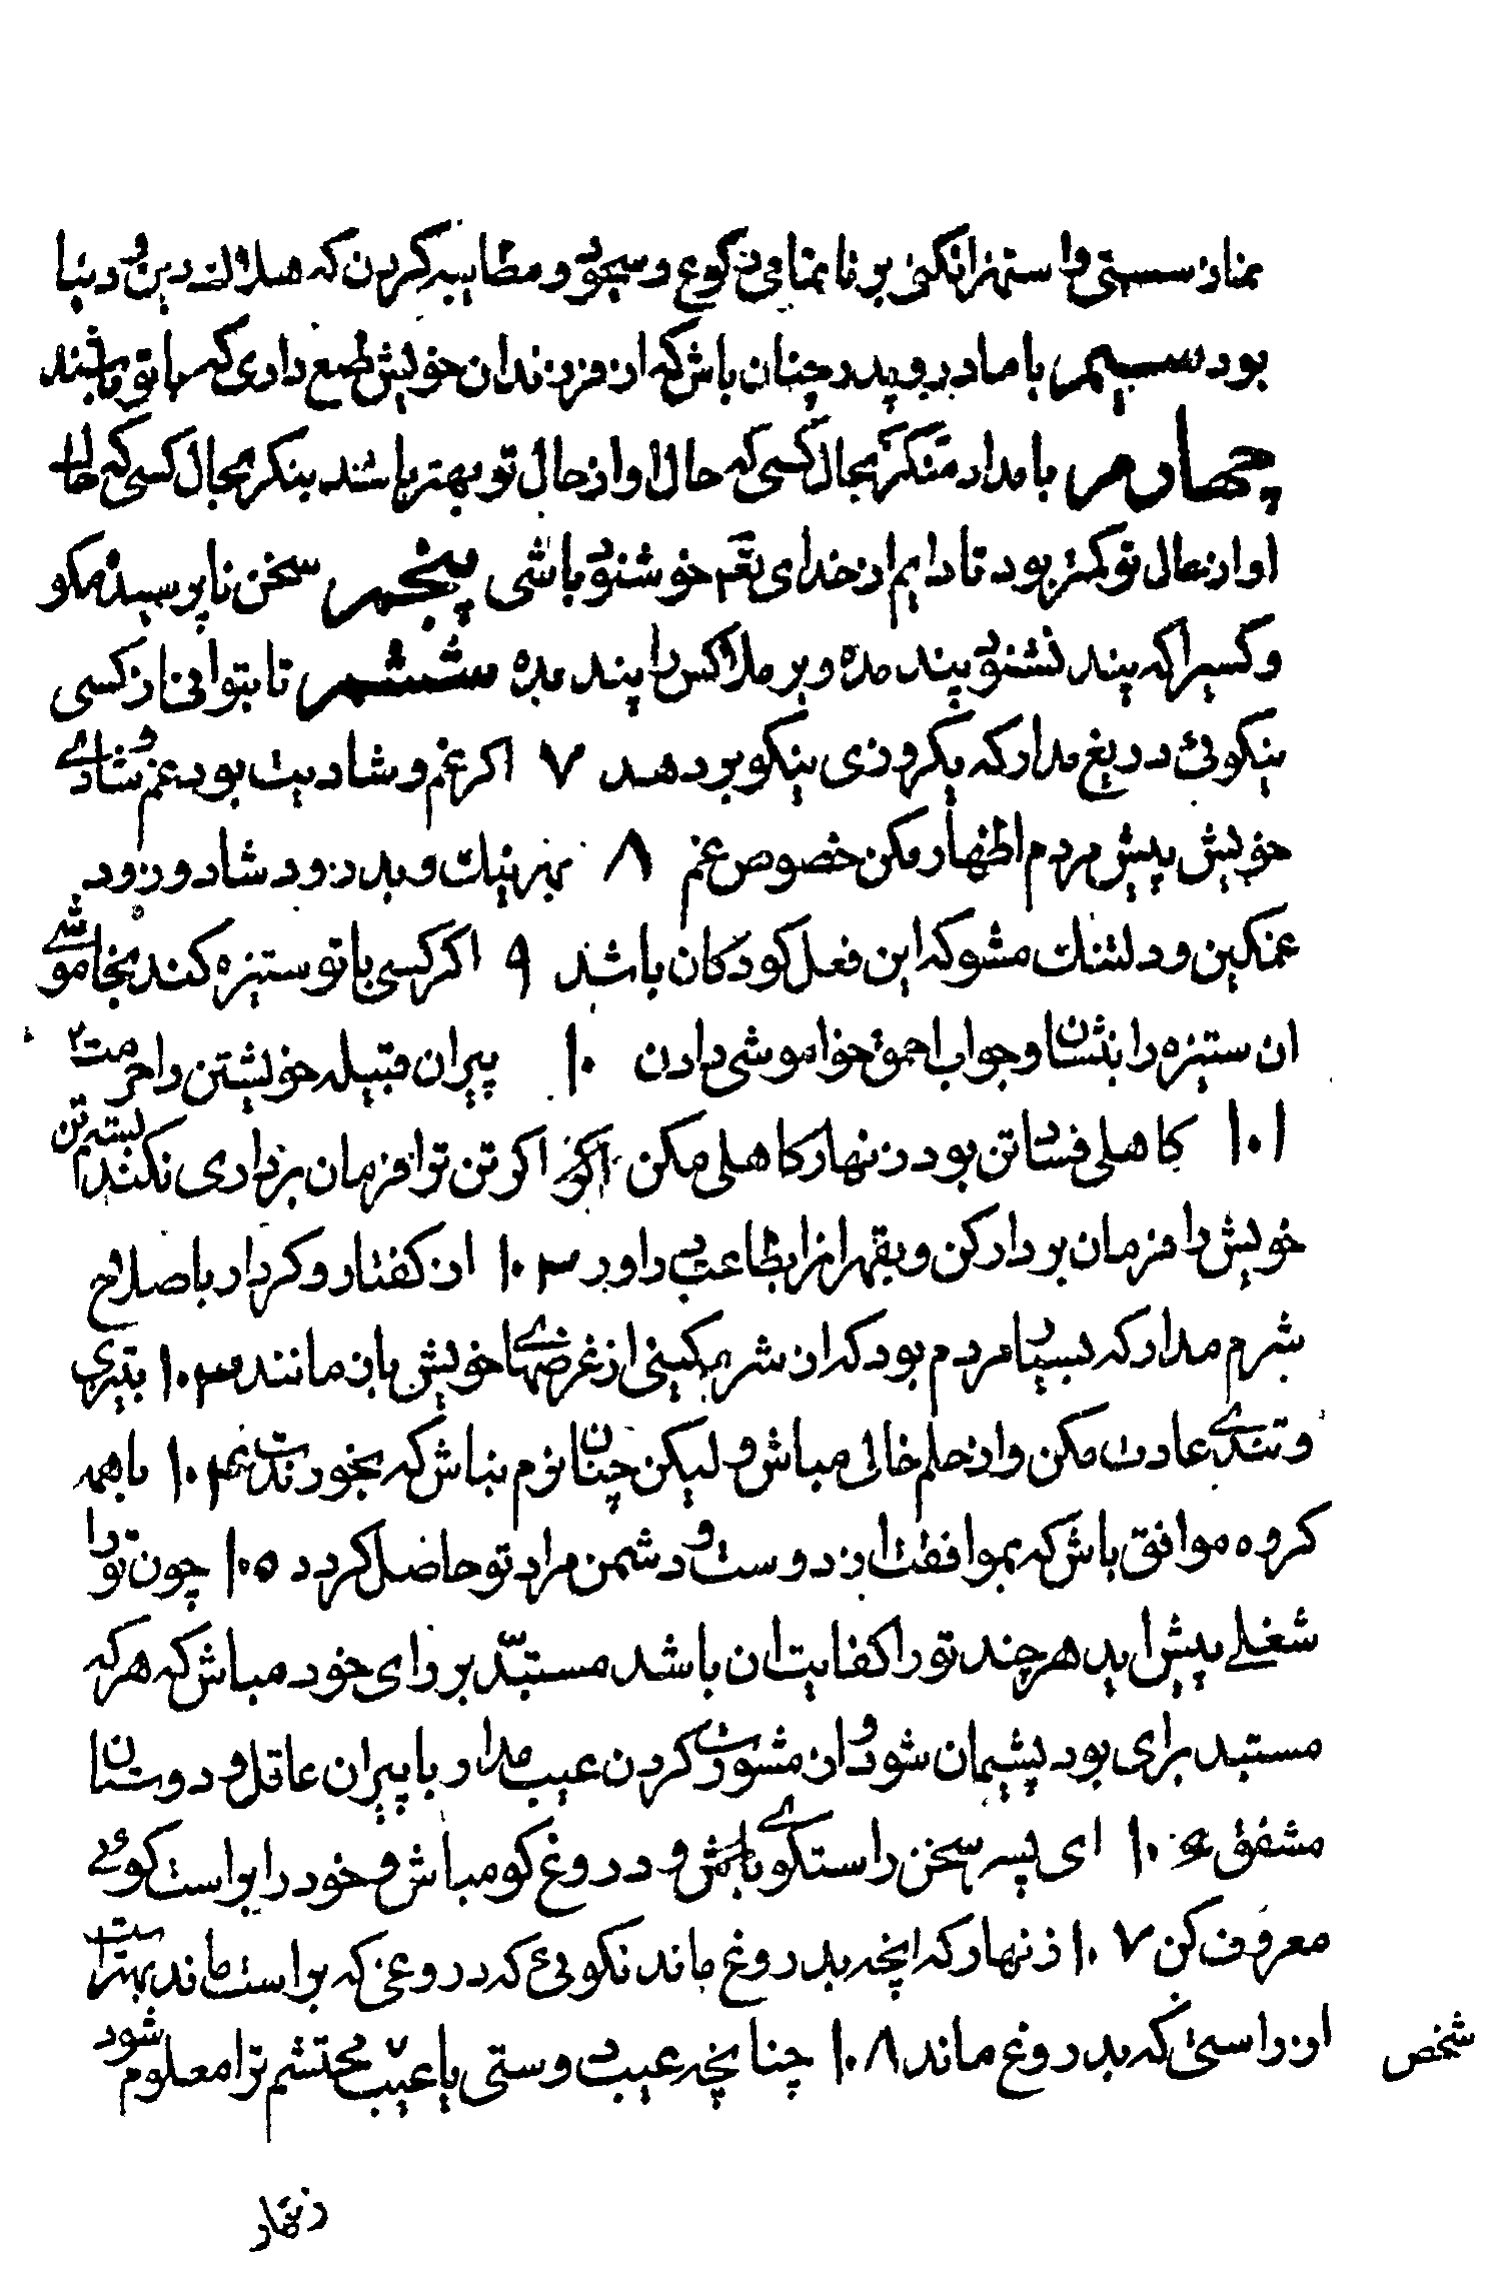 نماز سستی و استهزا نکنی بر ناتمامی رکوع و سجود و مطایبه کردن که هلاك دین و دنیا
بود سیم با مادر و پدر چنان باش که از فرزندان خویش طمع داری که با تو باشند
چهارم بامداد منکر بحال کسی که حال او از حال تو بهتر باشد بنکر بحال کسی که حال
او از حال تو کمتر بود تا دایم از خدای تعم خوشنود باشی پنجم سخن ناپرسیده مکو
و کسیرا که پند نشنود پند مده و بر ملا کس را پند مده ششم تا بتوانی از کسی
نیکوئی دریغ مدار که یکروزی نیکو بر دهد ۷ اکر غم و شادیت بود غم و شادی
خویش پیش مردم اظهار مکن خصوص غم ۸ بهر نیك و بد زود شاد و زود
غمکین و دلتنك مشو که این فعل کودکان باشد ۹ اکر کسی با تو ستیزه کند بخاموشی
ان ستیزه را بنشان و جواب احمق خواموشی دادن ۱۰ پیران قبیله خویشتن را حرمت
۱۰۱ کاهلی فساد تن بود زنهار کاهلی مکن اکر اکر تن ترا فرمان برداری نکند
خویش را فرمان بردار کن و بقهر انرا بطاعت دراور ۱۰۲ از کفتار و کردار باصلاح
شرم مدار که بسیار مردم بود که از شرمکینی از غرضهای خویش باز مانند ۱۰۳ بتیزی
و تندی عادت مکن و از حلم خالی مباش و لیکن چنان نرم مباش که بخورندت ۱۰۴ با همه
کروه موافق باش که بموافقت از دوست و دشمن مراد تو حاصل کردد ۱۰۵ چون تو را
شغلی پیش اید هر چند تو را کفایت ان باشد مستبدّ بر رای خود مباش که هر که
مستبد برای بود پشیمان شود و از مشورت کردن عیب مدار با پیران عاقل و دوستان
مشفق ۱۰۶ ای پسر سخن راستکوی باش و دروغ کو مباش و خود را براست کوئی
معروف کن ۱۰۷ زنهار که انچه بدروغ ماند نکوئی که دروغی که براست ماند بهتر است
از راستی که بدروغ ماند ۱۰۸ چنانچه عیب دوستی یا عیب محتشم ترا معلوم شود
شخص
زنهار